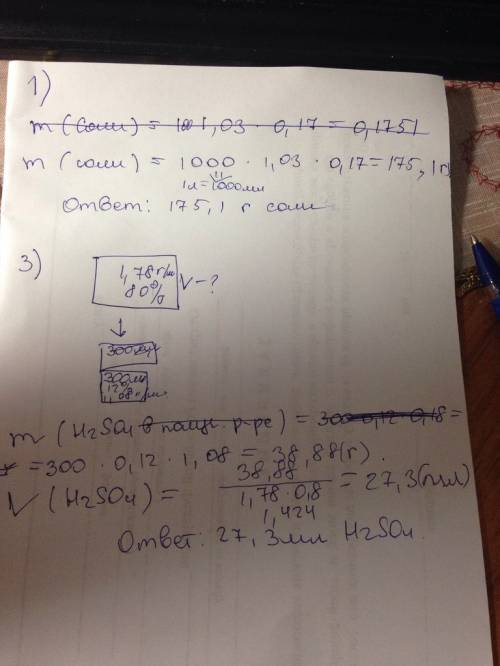 1)
m (соли) = 1,03 · 0,17 = 0,1751
m (соли) = 1000 · 1,03 · 0,17 = 175,1 г
1л = 1000мл
Ответ: 175,1 г соли
3)
1,78 г/мл
80%
V - ?
300мл
12%
1,08 г/мл
m (H2SO4 в получ. р-ре) = 300 · 0,12 · 0,18 =
= 300 · 0,12 · 1,08 = 38,88(г).
V (H2SO4) = 38,88 / 1,78 · 0,8 = 27,3(мл)
1,424
Ответ: 27,3мл H2SO4.